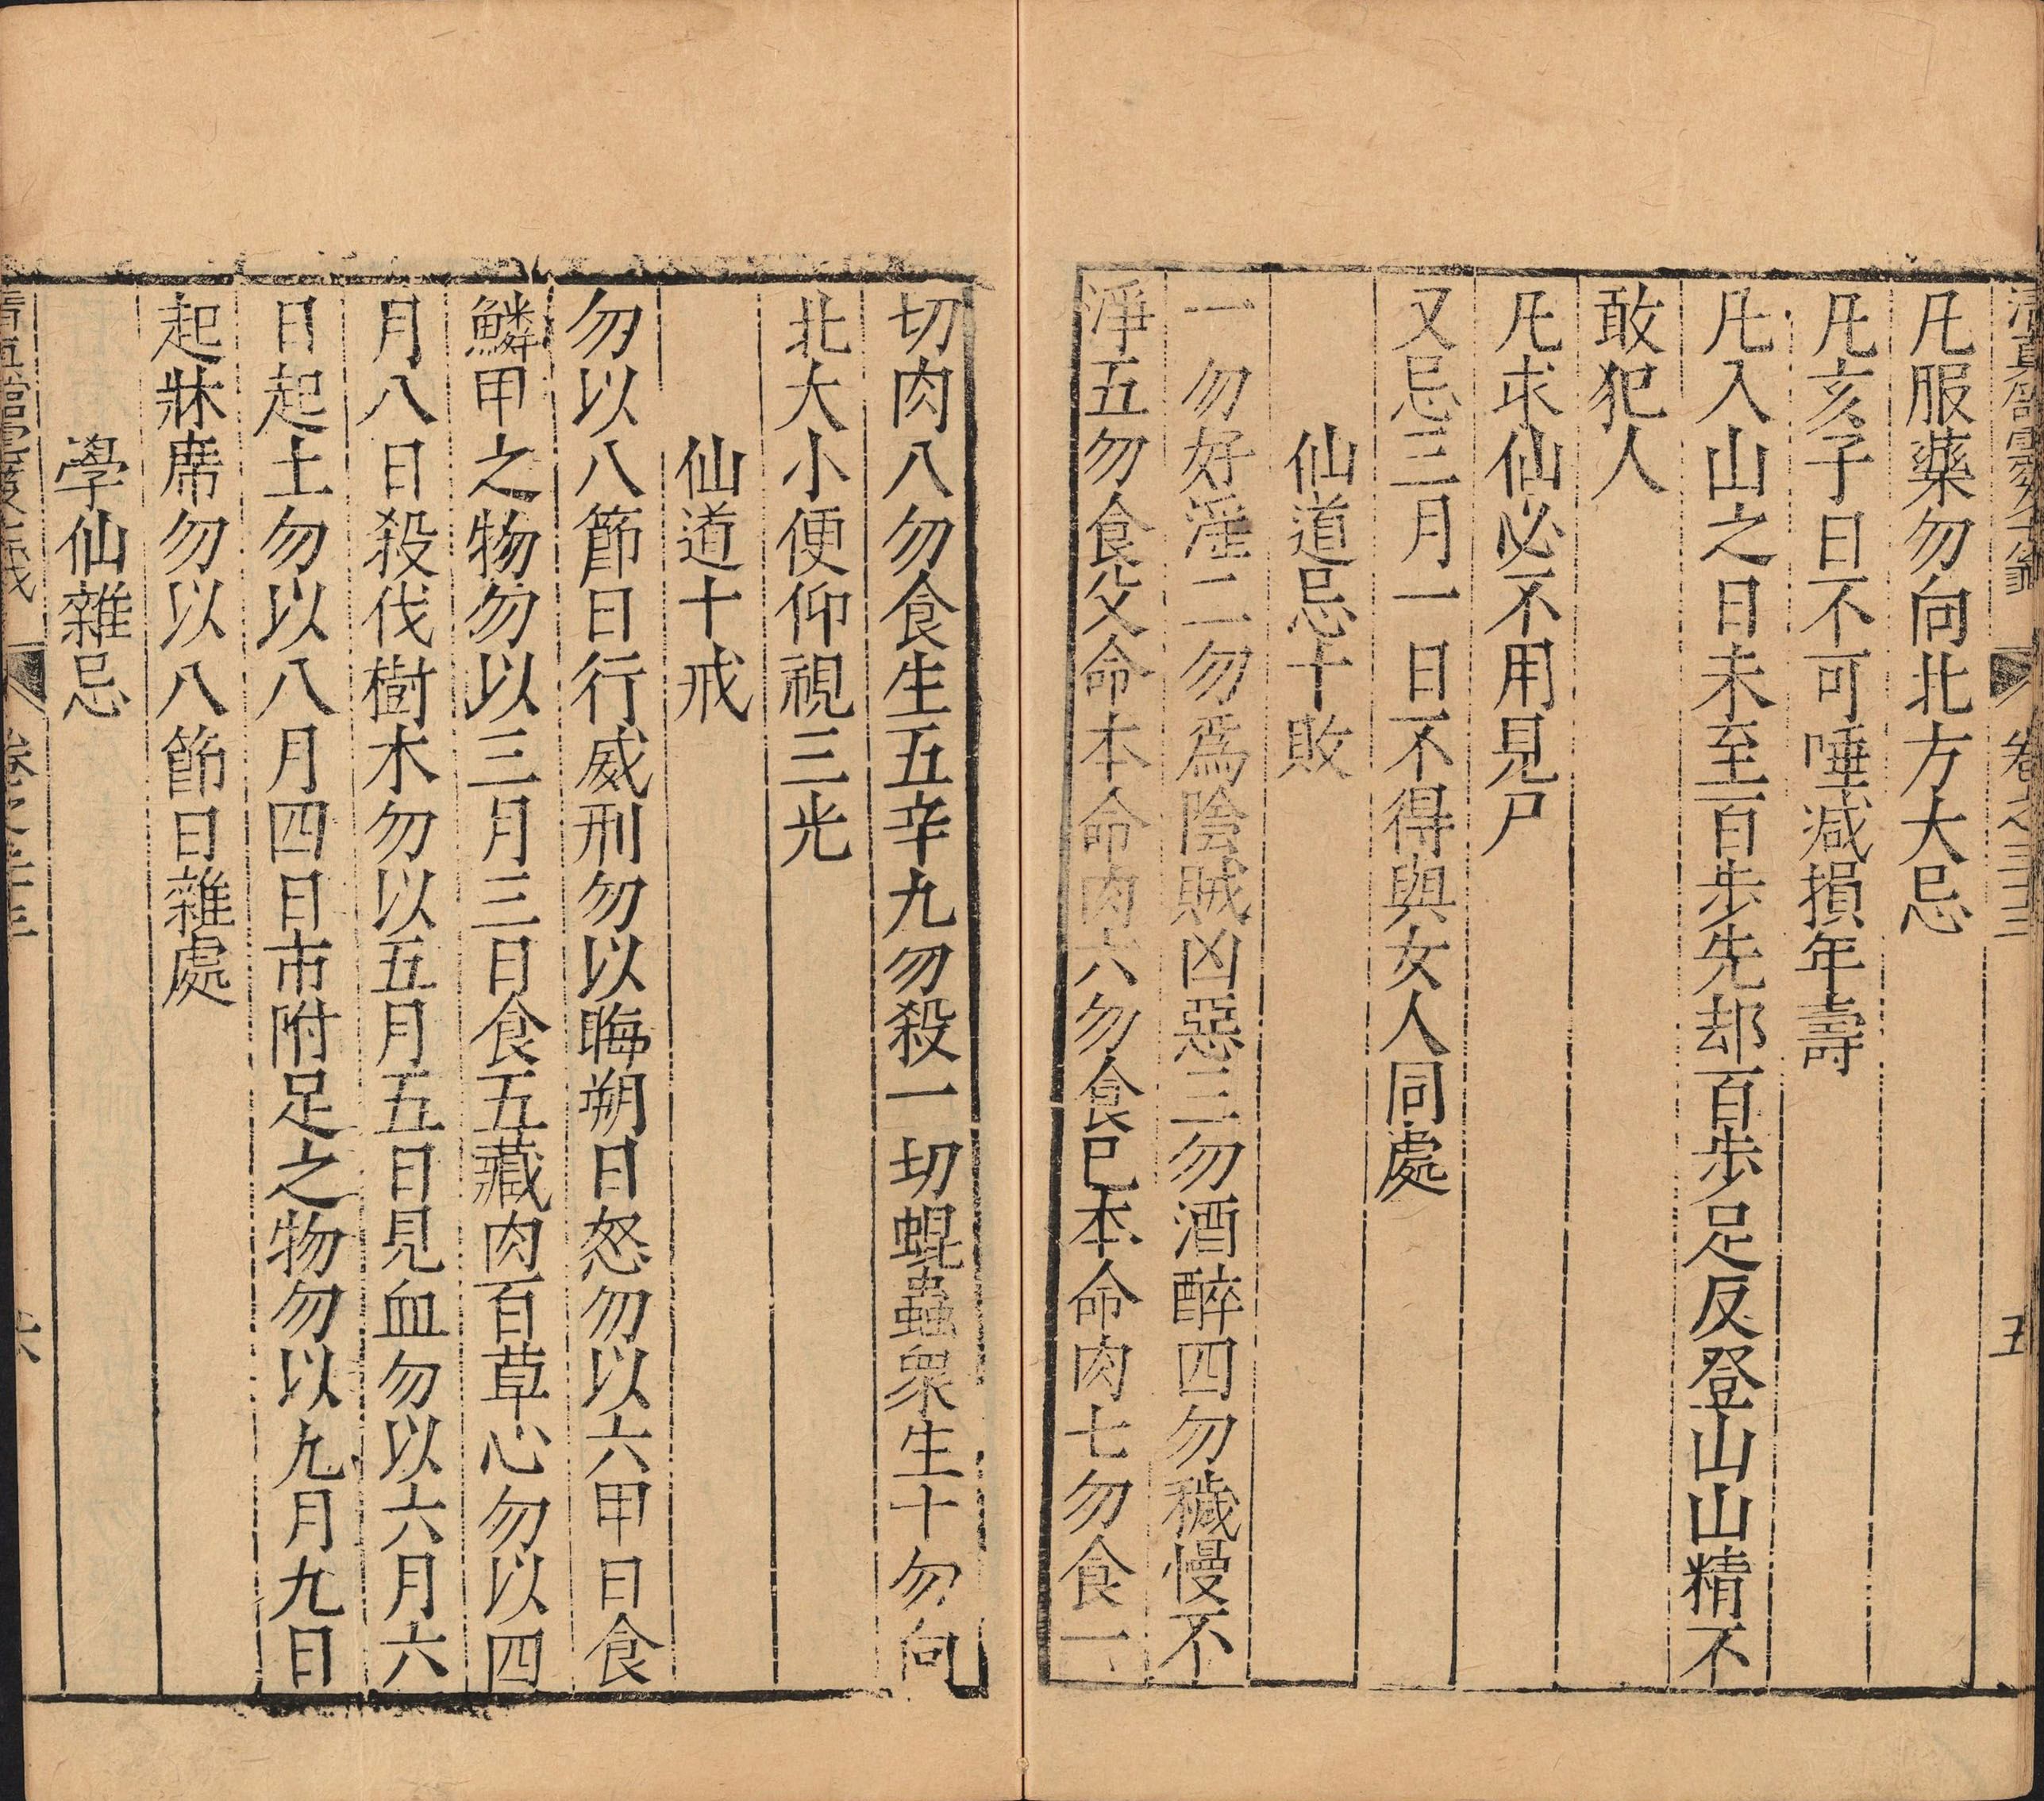 卷之三十三
五
凡服藥勿向北方大忌
凡亥子日不可唾減損年壽
凡入山之日未至百步先却百步足反登山山精不
敢犯人
凡求仙必不用見尸
又忌三月一日不得與女人同處
仙道忌十敗
一勿好淫二勿爲陰賊凶惡三勿酒醉四勿穢慢不
淨五勿食父命本命肉六勿食已本命肉七勿食一
切肉八勿食生五辛九勿殺一切蜫蟲衆生十勿向
北大小便仰視三光
仙道十戒
勿以八節日行威刑勿以晦朔日怒勿以六甲日食
鱗甲之物勿以三月三日食五藏肉百草心勿以四
月八日殺伐樹木勿以五月五日見血勿以六月六
日起土勿以八月四日市附足之物勿以九月九日
起牀席勿以八節日雜處
學仙雜忌
六